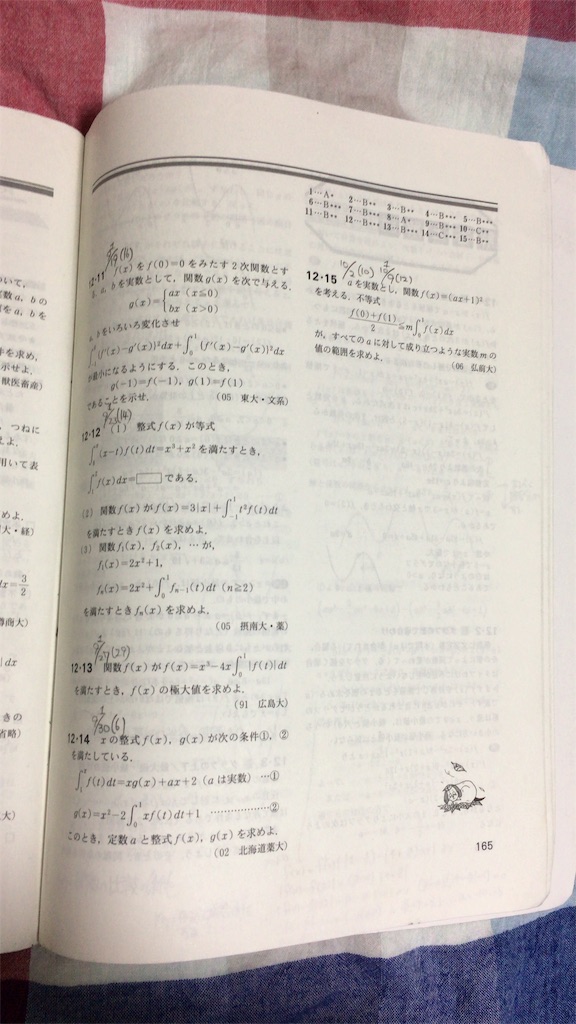 1…A* 2…B** 3…B** 4…B*** 5…B***
6…B*** 7…B*** 8…A* 9…B*** 10…C**
11…B** 12…B*** 13…B*** 14…C*** 15…B**
12・11 f(x)をf(0)=0をみたす2次関数とす
る. a, bを実数として, 関数g(x)を次で与える.
g(x)={ax (x≦0)
bx (x>0)
a, bをいろいろ変化させ
{f'(x)−g'(x)}²dx+∫₀¹{f'(x)−g'(x)}²dx
が最小になるようにする. このとき,
g(−1)=f(−1), g(1)=f(1)
であることを示せ.
(05 東大・文系)
12・12 (1) 整式f(x)が等式
(x−t)f(t)dt=x³+x²を満たすとき,
f(x)dx=□である.
(2) 関数f(x)がf(x)=3|x|+∫₋₁¹t²f(t)dt
を満たすときf(x)を求めよ.
(3) 関数f₁(x), f₂(x), …が,
f₁(x)=2x²+1,
fₙ(x)=2x²+∫₀¹fₙ₋₁(t)dt (n≧2)
を満たすときfₙ(x)を求めよ.
(05 摂南大・薬)
12・13 関数f(x)がf(x)=x³−4x∫₀¹|f(t)|dt
を満たすとき, f(x)の極大値を求めよ.
(91 広島大)
9/30(6)
12・14 xの整式f(x), g(x)が次の条件①, ②
を満たしている.
∫₁ˣf(t)dt=xg(x)+ax+2 (aは実数) …①
g(x)=x²−2∫₀¹xf(t)dt+1 ………………②
このとき, 定数aと整式f(x), g(x)を求めよ.
(02 北海道薬大)
10/2(10) 9(12)
12・15 aを実数とし, 関数f(x)=(ax+1)²
を考える. 不等式
f(0)+f(1)/2≦m∫₀¹f(x)dx
が, すべてのaに対して成り立つような実数mの
値の範囲を求めよ.
(06 弘前大)
165
ついて,
a, bの
a, bを
を求め,
示せよ.
獣医畜産)
, つねに
用いて表
めよ.
大・経)
dx=3/2
樽商大)
dx
きの
省略)
大)